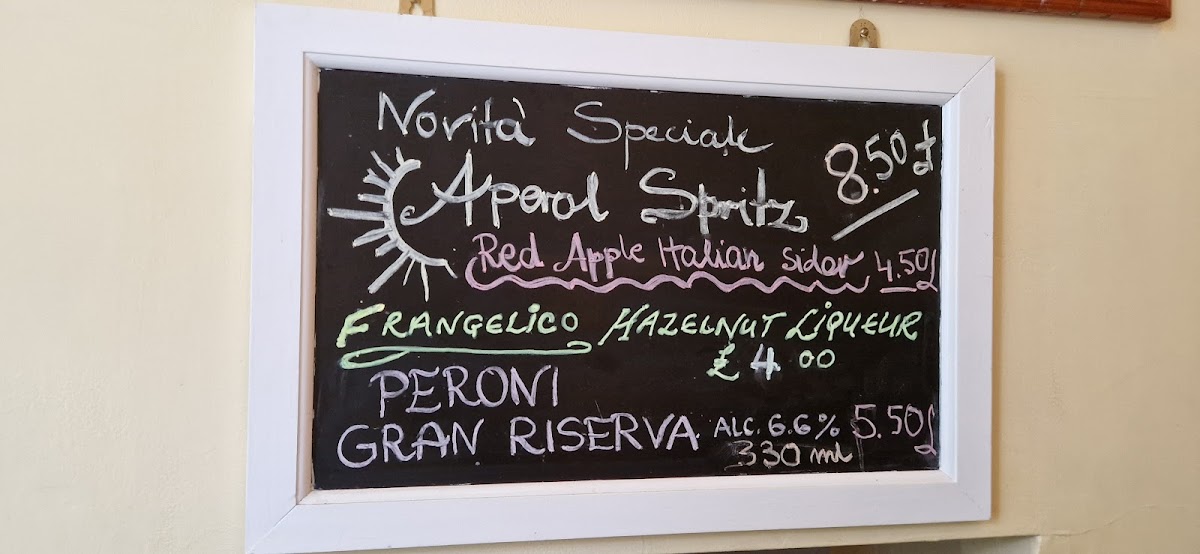 Novità Speciale
Aperol Spritz 8.50 £
Red Apple Italian sider 4.50£
FRANGELICO HAZELNUT LIQUEUR
£ 4.00
PERONI
GRAN RISERVA ALC. 6.6% 5.50£
330 ml